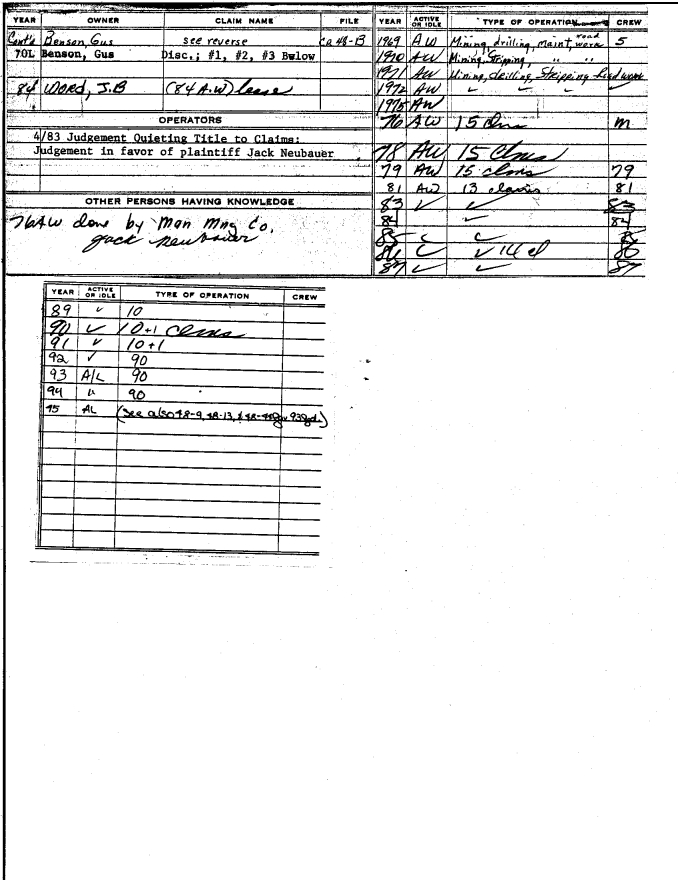 YEAR OWNER CLAIM NAME FILE
Cont'd Benson, Gus see reverse ca 48-B
70L Benson, Gus Disc.; #1, #2, #3 Bwlow
84 WORD, J.B (84 A.W) lease
OPERATORS
4/83 Judgement Quieting Title to Claims:
Judgement in favor of plaintiff Jack Neubauer
OTHER PERSONS HAVING KNOWLEDGE
76AW done by Man Mng Co.
Jack Neubauer
YEAR ACTIVE OR IDLE TYPE OF OPERATION CREW
1969 AW Mining, drilling, maint, road work 5
1970 AW Mining, Stripping, " "
1971 AW Mining, drilling, Stripping
1972 AW ✓ ✓ ✓ ✓
1975 AW
76 AW 15 clms M
78 AW 15 Clms
79 AW 15 clms 79
81 AW 13 claims 81
83 ✓ ✓ 83
84 ✓ 84
85
86
87 ✓ ✓ 87
YEAR ACTIVE OR IDLE TYPE OF OPERATION CREW
89 " 10
90 ✓ 10+1 Clms
91 ✓ 10+1
92 ✓ 90
93 A/L 90
94 " 90
95 AL (see also 48-9, 48-13, &